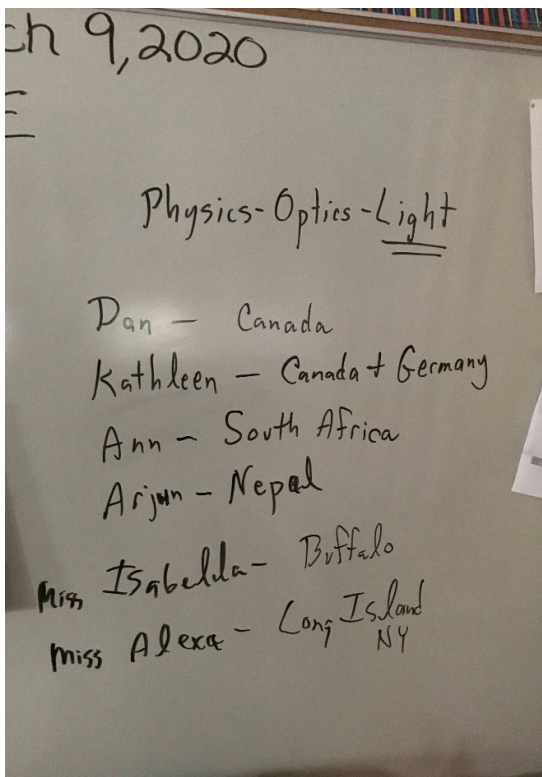 ch 9, 2020
E
Physics-Optics-Light
Dan - Canada
Kathleen - Canada + Germany
Ann - South Africa
Arjun - Nepal
Miss Isabella - Buffalo
Miss Alexa - Long Island
NY